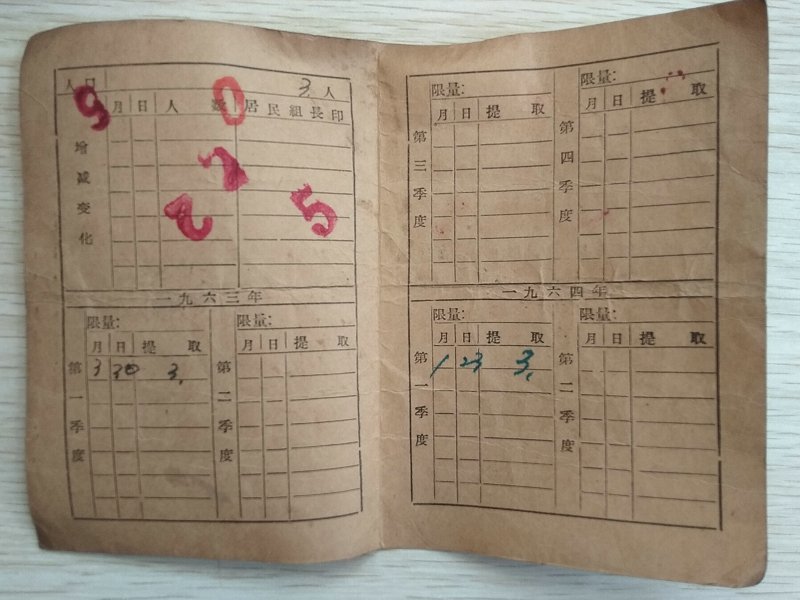 人口 3人
月 日 人数 居民组长印
增减变化
5
0
2
2
5
一九六三年
限量:
月 日 提取
第一季度
3 30 3.
限量:
月 日 提取
第二季度
限量:
月 日 提取
第三季度
限量:
月 日 提取
第四季度
一九六四年
限量:
月 日 提取
第一季度
1 23 3.
限量:
月 日 提取
第二季度